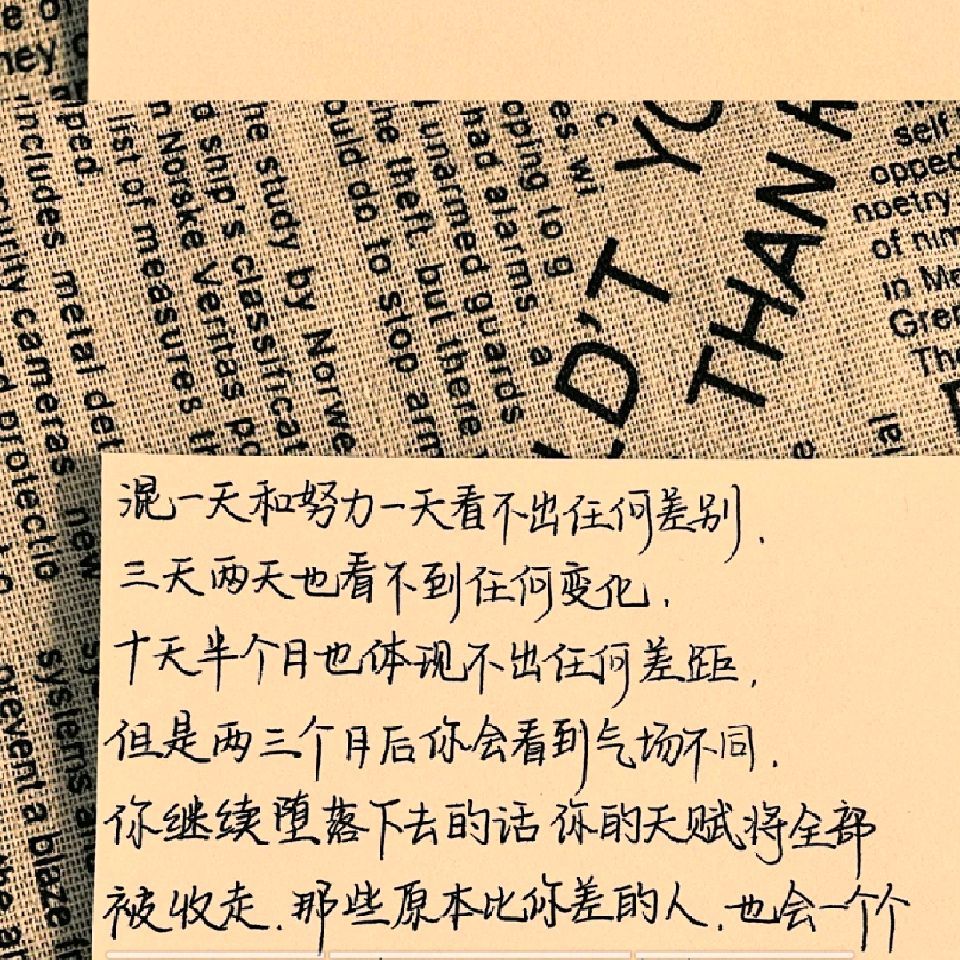 includes metal det
list of measures th
n Norske Veritas po
d ship's classificat
he study by Norwe
ould do to stop arm
he theft, but there
unarmed guards
had alarms, a
oping to g
es wi
LD'T YO
THAN
self
opped
noetry
of nim
in Me
Gree
The
混一天和努力一天看不出任何差别.
三天两天也看不到任何变化.
十天半个月也体现不出任何差距.
但是两三个月后你会看到气场不同.
你继续堕落下去的话你的天赋将全部
被收走.那些原本比你差的人.也会一个个